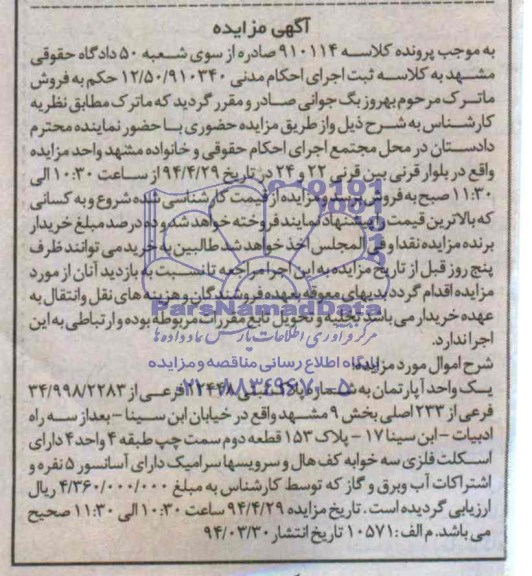 آگهی مزایده
به موجب پرونده کلاسه ۹۱۰۱۱۴ صادره از سوی شعبه ۵۰ دادگاه حقوقی
مشهد به کلاسه ثبت اجرای احکام مدنی ۱۲/۵۰/۹۱۰۳۴۰ حکم به فروش
ماترک مرحوم بهروز بگ جوانی صادر و مقرر گردید که ماترک مطابق نظریه
کارشناس به شرح ذیل واز طریق مزایده حضوری با حضور نماینده محترم
دادستان در محل مجتمع اجرای احکام حقوقی و خانواده مشهد واحد مزایده
واقع در بلوار قرنی بین قرنی ۲۲ و ۲۴ در تاریخ ۹۴/۴/۲۹ از ساعت ۱۰:۳۰ الی
۱۱:۳۰ صبح به فروش برسد و مزایده از قیمت کارشناسی شده شروع و به کسانی
که بالاترین قیمت را پیشنهاد نمایند فروخته خواهد شد و ده درصد مبلغ خریدار
برنده مزایده نقدا و فی المجلس اخذ خواهد شد طالبین به خرید می توانند ظرف
پنج روز قبل از تاریخ مزایده به این اجرا مراجعه تا نسبت به بازدید آنان از مورد
مزایده اقدام گردد بدیهای معوقه بعهده فروشندگان و هزینه های نقل وانتقال به
عهده خریدار می باشد تخلیه و تحویل تابع مقررات مربوطه بوده و ارتباطی به این
اجرا ندارد.
ParsNamadData
مرکز فرآوری اطلاعات پارس نماد داده ها
شرح اموال مورد مزایده:
پایگاه اطلاع رسانی مناقصه و مزایده
۰۲۱-۸۸۳۴۹۶۷۰-۵
یک واحد آپارتمان به شماره پلاک ثبتی ۲۲۴۴۸ فرعی از ۳۴/۹۹۸/۲۲۸۳
فرعی از ۲۳۳ اصلی بخش ۹ مشهد واقع در خیابان ابن سینا - بعد از سه راه
ادبیات - ابن سینا ۱۷ - پلاک ۱۵۳ قطعه دوم سمت چپ طبقه ۴ واحد ۴ دارای
اسکلت فلزی سه خوابه کف هال و سرویسها سرامیک دارای آسانسور ۵ نفره و
اشتراکات آب وبرق و گاز که توسط کارشناس به مبلغ ۴/۳۶۰/۰۰۰/۰۰۰ ریال
ارزیابی گردیده است. تاریخ مزایده ۹۴/۴/۲۹ ساعت ۱۰:۳۰ الی ۱۱:۳۰ صحیح
می باشد. م الف: ۱۰۵۷۱ تاریخ انتشار ۹۴/۰۳/۳۰